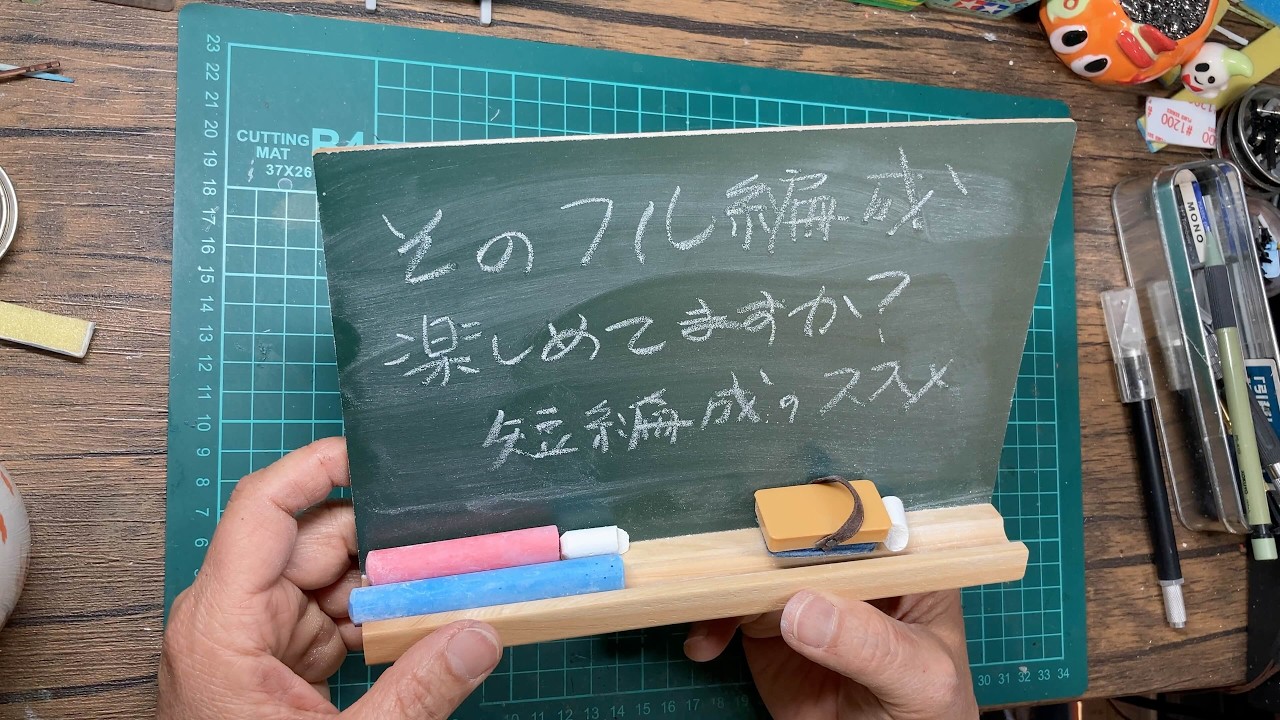 そのフル編成
楽しめてますか?
短編成のススメ
CUTTING
MAT
37X26
23
22
21
20
19
18
17
16
15
14
13
12
11
10
9
8
7
6
5
30 31 32 33 34
MONO
#1200